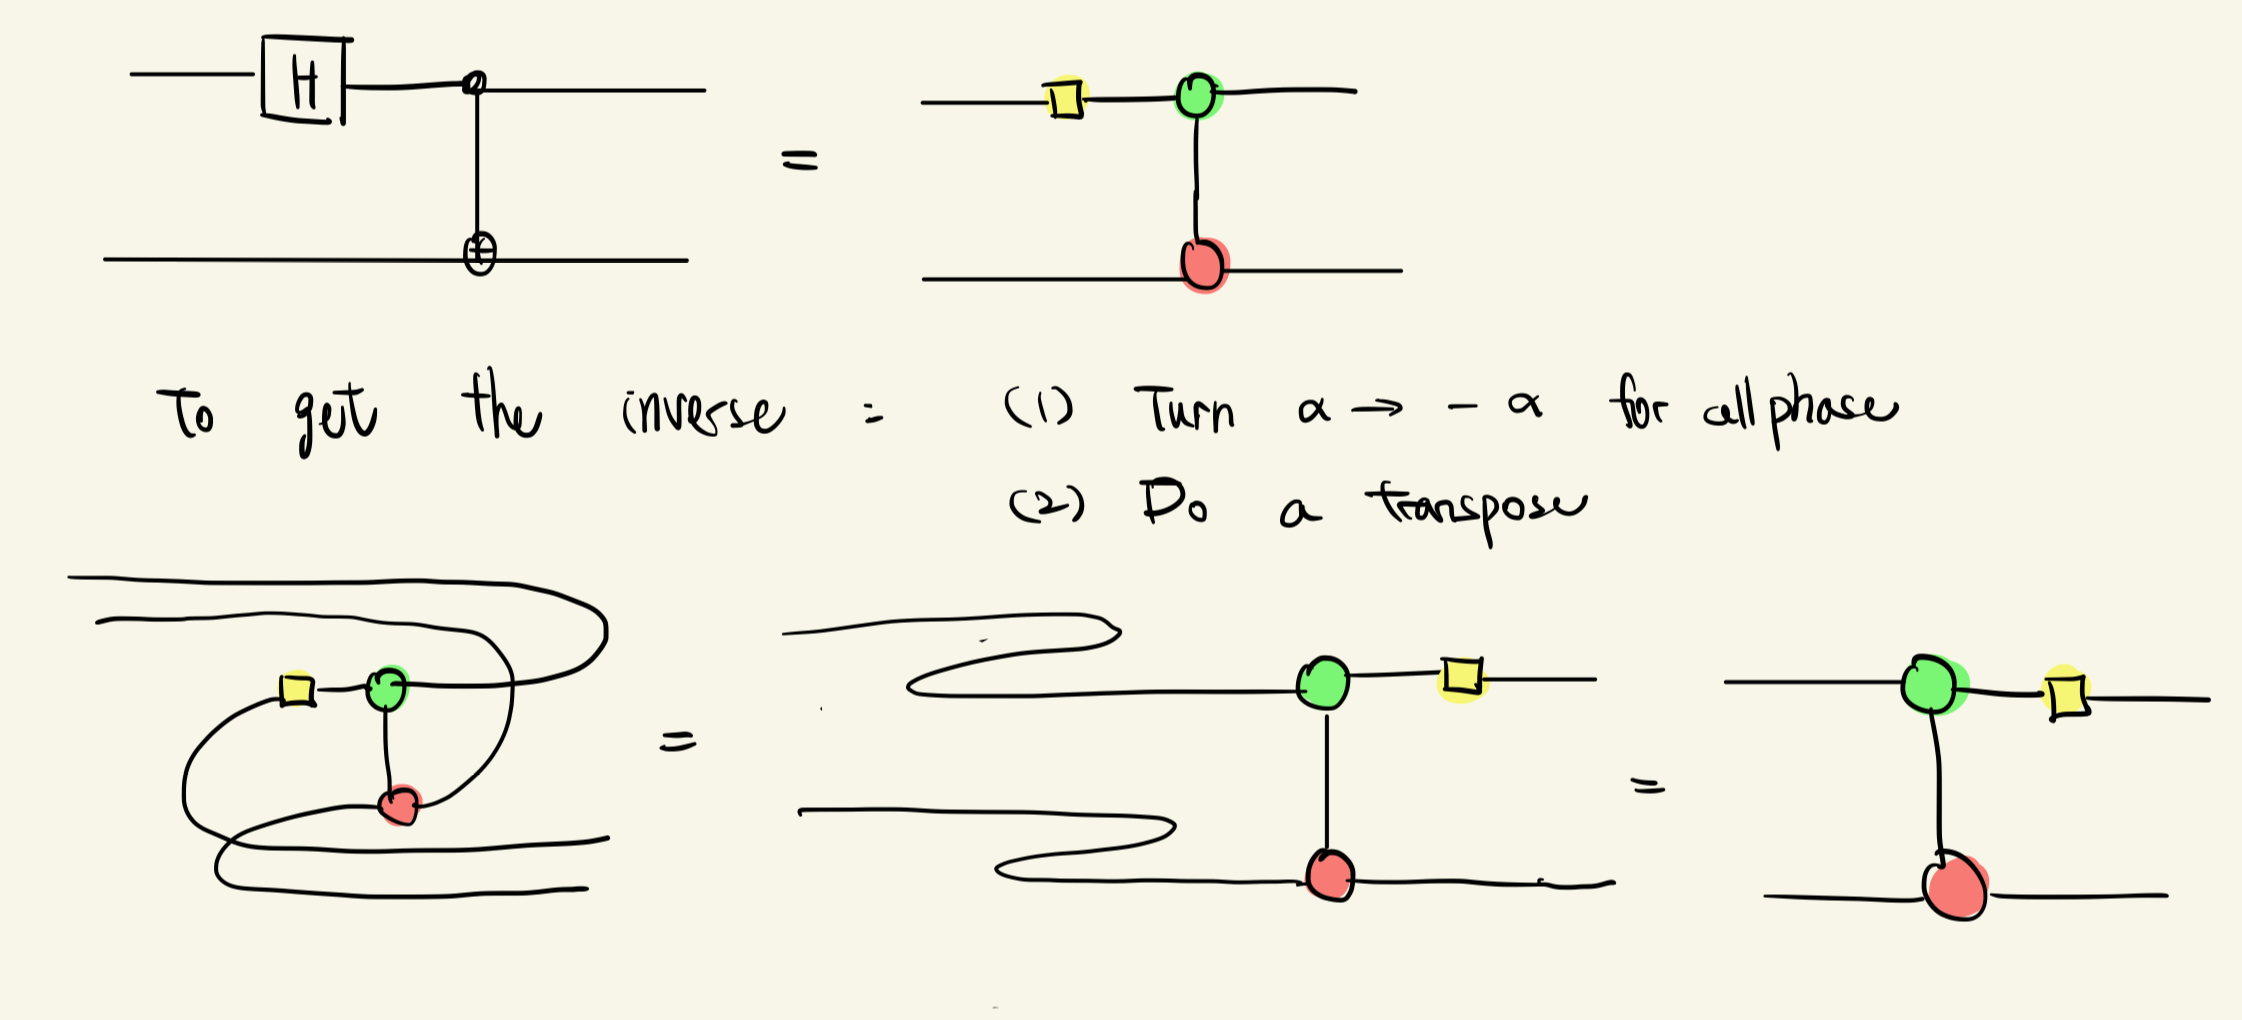 H
=
To get the inverse : (1) Turn α → - α for all phase
(2) Do a transpose
=
=